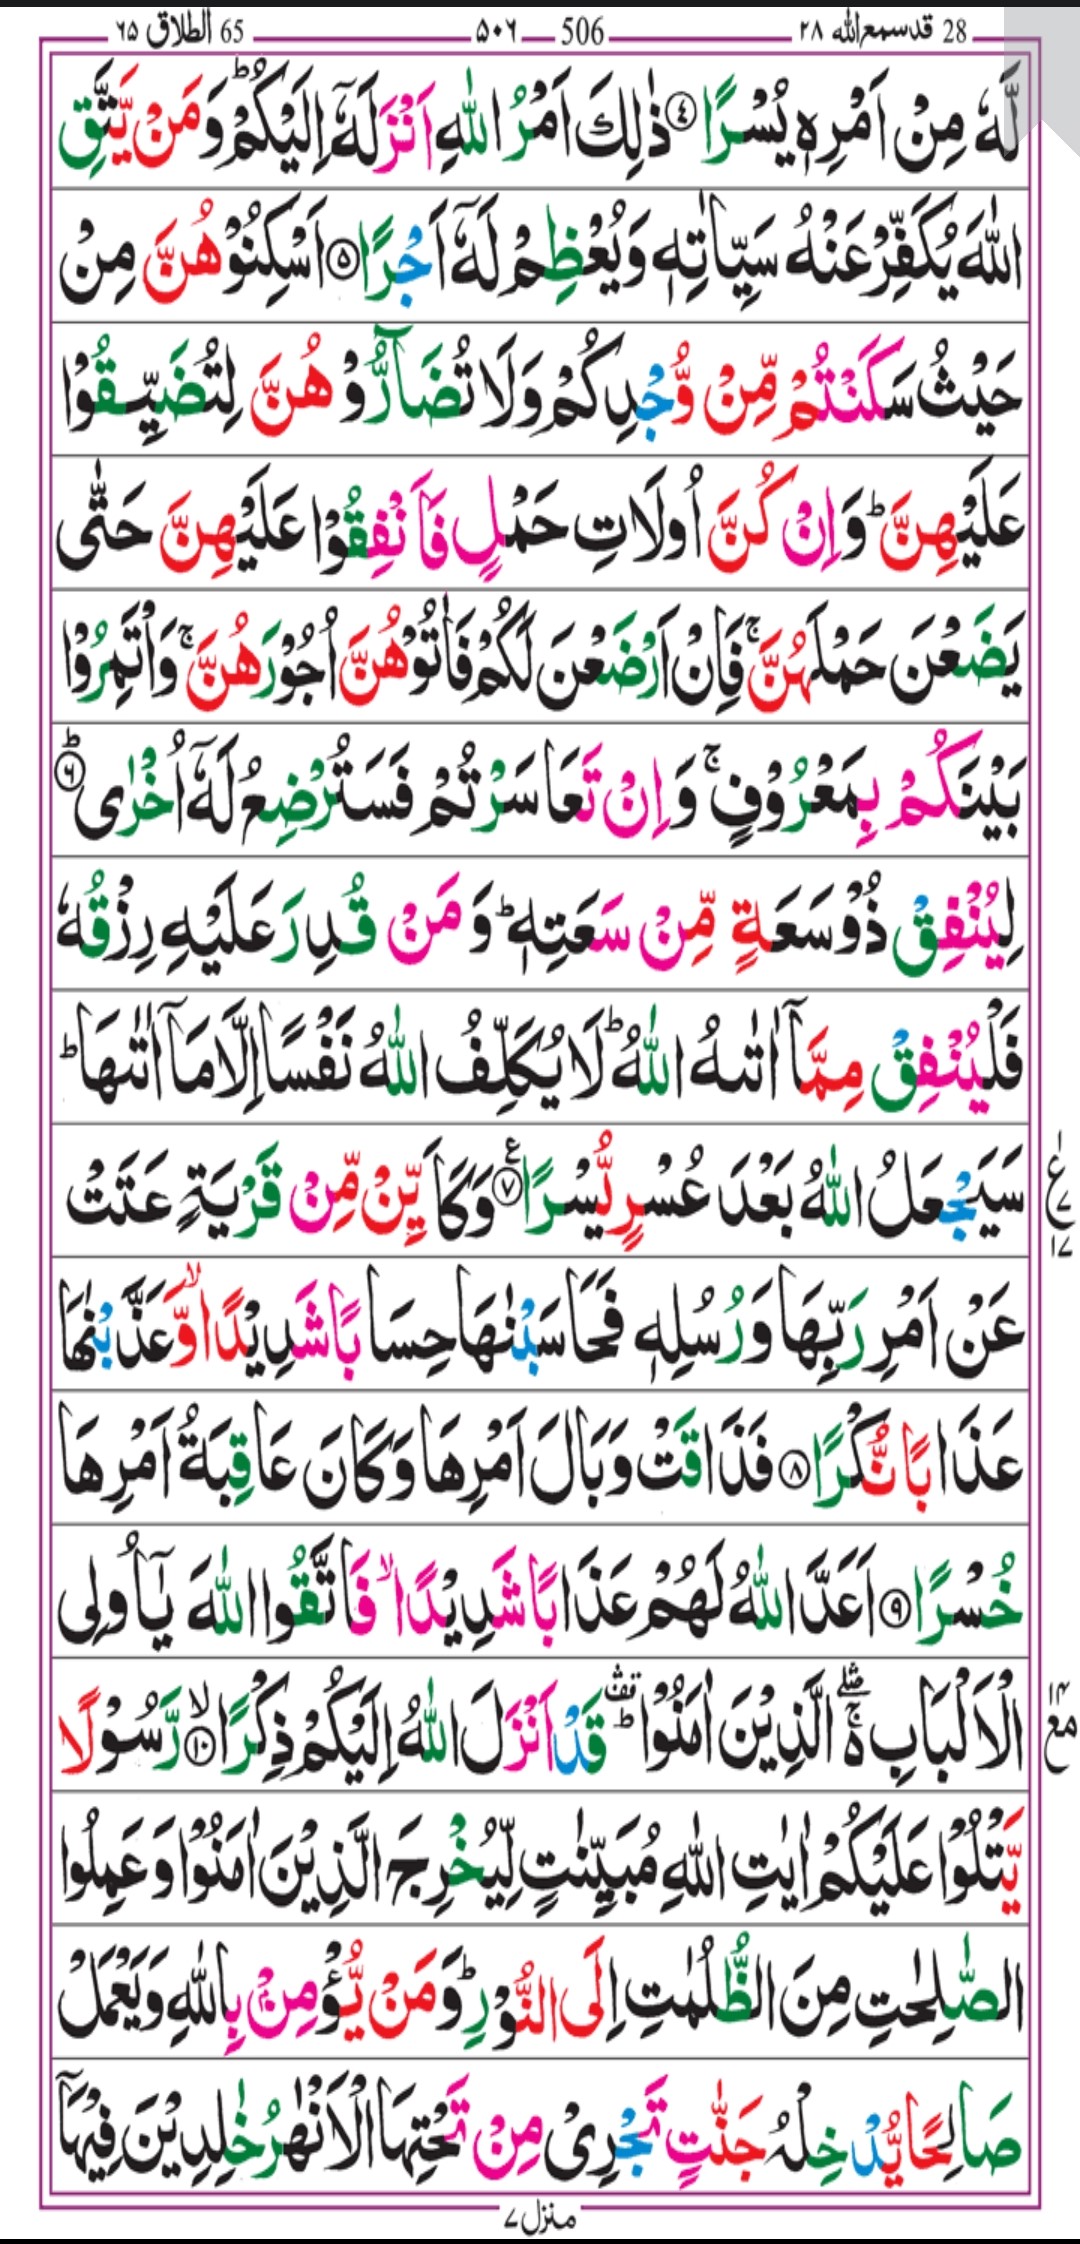 28 قدسمع الله ٢٨ 506 ٥٠٦ 65 الطلاق ٦٥
لَّهٗ مِنْ اَمْرِهٖ يُسْرًا ﴿۴﴾ ذٰلِكَ اَمْرُ اللّٰهِ اَنْزَلَهٗۤ اِلَيْكُمْ ؕ وَمَنْ يَّتَّقِ
اللّٰهَ يُكَفِّرْ عَنْهُ سَيِّاٰتِهٖ وَيُعْظِمْ لَهٗۤ اَجْرًا ﴿۵﴾ اَسْكِنُوْهُنَّ مِنْ
حَيْثُ سَكَنْتُمْ مِّنْ وُّجْدِكُمْ وَلَا تُضَآرُّوْهُنَّ لِتُضَيِّقُوْا
عَلَيْهِنَّ ؕ وَاِنْ كُنَّ اُولَاتِ حَمْلٍ فَاَنْفِقُوْا عَلَيْهِنَّ حَتّٰى
يَضَعْنَ حَمْلَهُنَّ ۚ فَاِنْ اَرْضَعْنَ لَكُمْ فَاٰتُوْهُنَّ اُجُوْرَهُنَّ ۚ وَاْتَمِرُوْا
بَيْنَكُمْ بِمَعْرُوْفٍ ۚ وَاِنْ تَعَاسَرْتُمْ فَسَتُرْضِعُ لَهٗۤ اُخْرٰى ؕ﴿۶﴾
لِيُنْفِقْ ذُوْ سَعَةٍ مِّنْ سَعَتِهٖ ؕ وَمَنْ قُدِرَ عَلَيْهِ رِزْقُهٗ
فَلْيُنْفِقْ مِمَّاۤ اٰتٰىهُ اللّٰهُ ؕ لَا يُكَلِّفُ اللّٰهُ نَفْسًا اِلَّا مَاۤ اٰتٰىهَا ؕ
سَيَجْعَلُ اللّٰهُ بَعْدَ عُسْرٍ يُّسْرًا ﴿۷﴾ع وَكَاَيِّنْ مِّنْ قَرْيَةٍ عَتَتْ
ع ٧ ١٧
عَنْ اَمْرِ رَبِّهَا وَرُسُلِهٖ فَحَاسَبْنٰهَا حِسَابًا شَدِيْدًا ۙ وَّعَذَّبْنٰهَا
عَذَابًا نُّكْرًا ﴿۸﴾ فَذَاقَتْ وَبَالَ اَمْرِهَا وَكَانَ عَاقِبَةُ اَمْرِهَا
خُسْرًا ﴿۹﴾ اَعَدَّ اللّٰهُ لَهُمْ عَذَابًا شَدِيْدًا ۙ فَاتَّقُوا اللّٰهَ يٰۤاُولِى
الْاَلْبَابِ ۛۚ الَّذِيْنَ اٰمَنُوْا ؕۛ قَدْ اَنْزَلَ اللّٰهُ اِلَيْكُمْ ذِكْرًا ۙ﴿۱۰﴾ رَّسُوْلًا
يَّتْلُوْا عَلَيْكُمْ اٰيٰتِ اللّٰهِ مُبَيِّنٰتٍ لِّيُخْرِجَ الَّذِيْنَ اٰمَنُوْا وَعَمِلُوا
الصّٰلِحٰتِ مِنَ الظُّلُمٰتِ اِلَى النُّوْرِ ؕ وَمَنْ يُّؤْمِنْۢ بِاللّٰهِ وَيَعْمَلْ
صَالِحًا يُّدْخِلْهُ جَنّٰتٍ تَجْرِىْ مِنْ تَحْتِهَا الْاَنْهٰرُ خٰلِدِيْنَ فِيْهَاۤ
منزل ٧